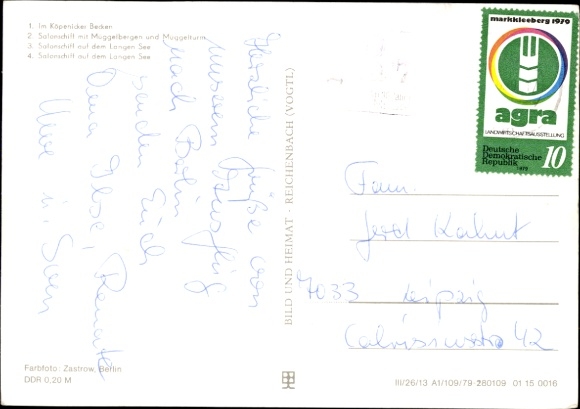 1. Im Köpenicker Becken
2. Salonschiff mit Müggelbergen und Müggelturm
3. Salonschiff auf dem Langen See
4. Salonschiff auf dem Langen See
Herzliche Grüße von
unserem Ausflug
nach Berlin
senden Euch
Oma Ilse, Renate
Uwe u. Sven
Farbfoto: Zastrow, Berlin
DDR 0,20 M
BILD UND HEIMAT · REICHENBACH (VOGTL)
markkleeberg 1979
agra
LANDWIRTSCHAFTSAUSSTELLUNG
Deutsche
Demokratische
Republik
10
1979
Fam.
Gerd Kahnt
7033 Leipzig
Calvisiusstr. 42
III/26/13 A1/109/79-280109 01 15 0016